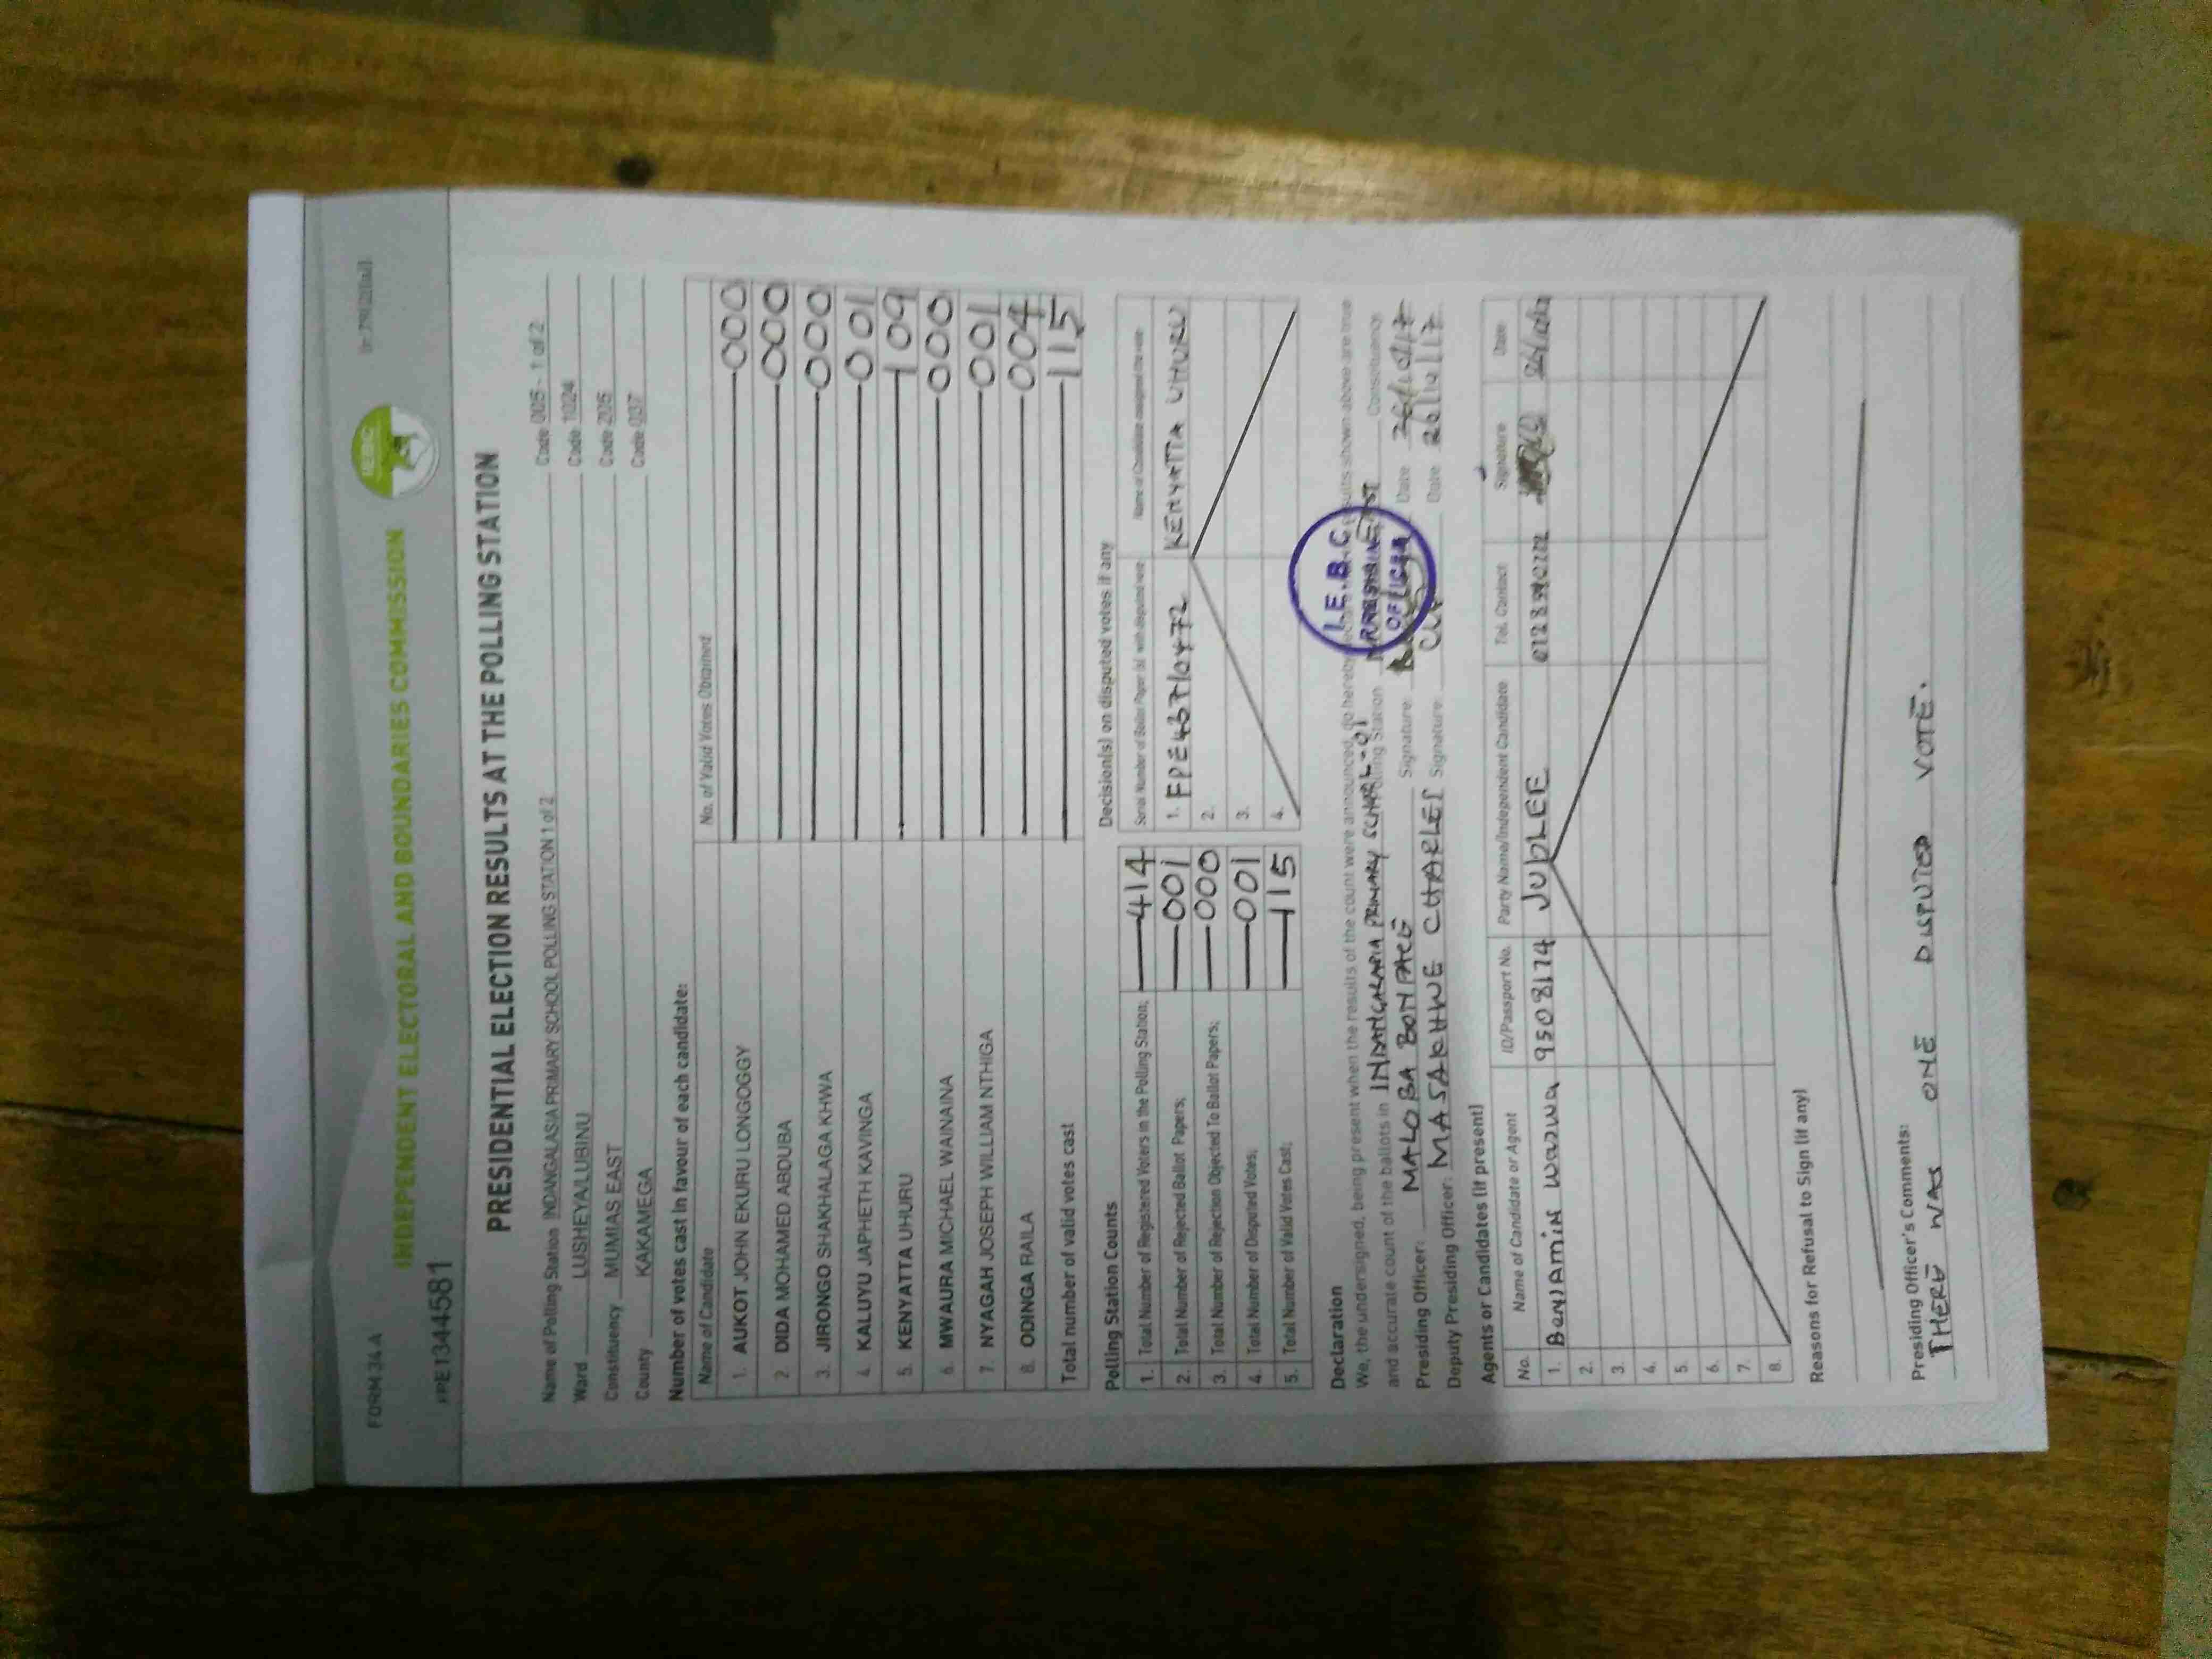 FORM 34A
INDEPENDENT ELECTORAL AND BOUNDARIES COMMISSION
IEBC
PE1344581
PRESIDENTIAL ELECTION RESULTS AT THE POLLING STATION
Name of Polling Station INDANGALASIA PRIMARY SCHOOL POLLING STATION 1 of 2 Code 005 - 1 of 2
Ward LUSHEYA/LUBINU Code 1024
Constituency MUMIAS EAST Code 205
County KAKAMEGA County Code 037
Number of votes cast in favour of each candidate:
Name of Candidate No. of Valid Votes Obtained
1. AUKOT JOHN EKURU LONGOGGY 000
2. DIDA MOHAMED ABDUBA 000
3. JIRONGO SHAKHALAGA KHWA 000
4. KALUYU JAPHETH KAVINGA 001
5. KENYATTA UHURU 109
6. MWAURA MICHAEL WAINAINA 000
7. NYAGAH JOSEPH WILLIAM NTHIGA 001
8. ODINGA RAILA 004
Total number of valid votes cast 115
Polling Station Counts
1. Total Number of Registered Voters in the Polling Station; 414
2. Total Number of Rejected Ballot Papers; 001
3. Total Number of Rejection Objected To Ballot Papers; 000
4. Total Number of Disputed Votes; 001
5. Total Number of Valid Votes Cast; 115
Decision(s) on disputed votes if any
Serial Number of Ballot Paper (s) with disputed vote Name of Candidate assigned the vote
1. KENYATTA UHURU
2.
3.
4.
Declaration
We, the undersigned, being present when the results of the count were announced, do hereby results shown above are true
and accurate count of the ballots in PRIMARY SCHOOL-01 Polling Station Constituency.
I.E.B.C.
Presiding Officer: MALOBA BONFACE Signature: Date 26/10/17
Deputy Presiding Officer: MASAKHWE CHARLES Signature: Date 26/10/17
Agents or Candidates (if present)
No. Name of Candidate or Agent ID/Passport No. Party Name/Independent Candidate Tel. Contact Signature Date
1. BenJAmiN 9508174 JUbLEE
2.
3.
4.
5.
6.
7.
8.
Reasons for Refusal to Sign (if any)
Presiding Officer's Comments:
THERE WAS ONE DISPUTED VOTE.